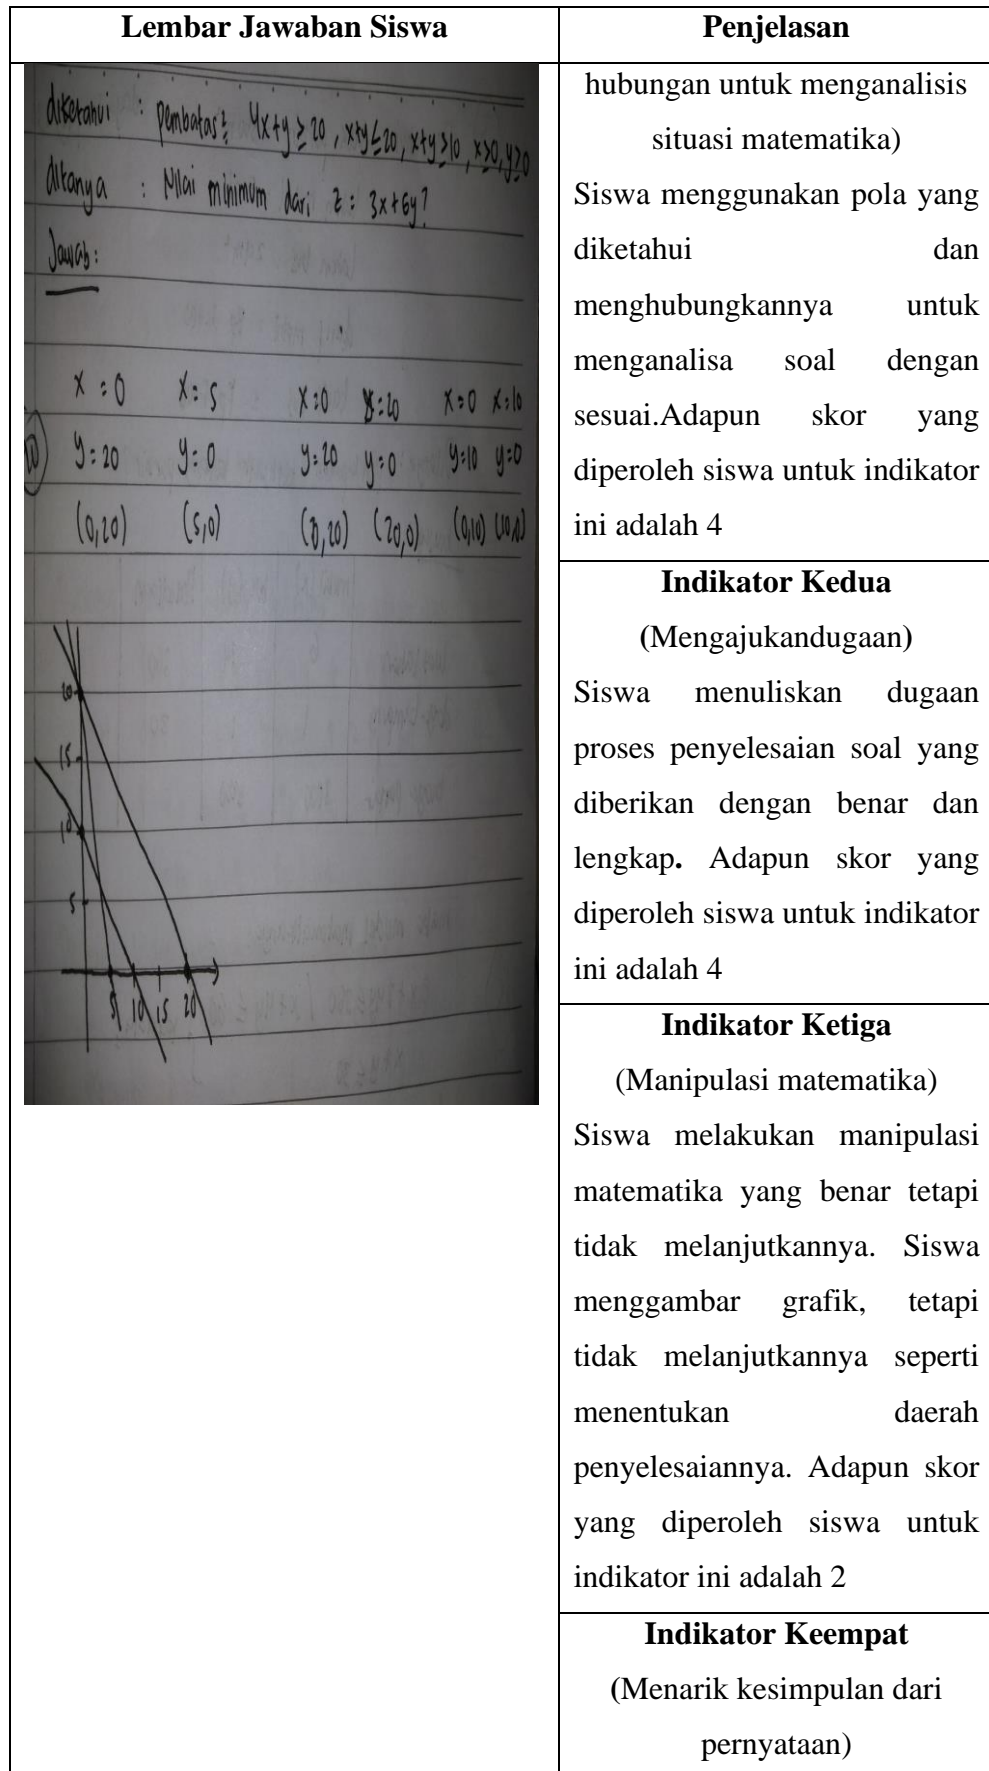 Lembar Jawaban Siswa
Penjelasan
diketahui : pembatas² 4x+y ≥ 20 , x+y ≤ 20 , x+y ≥ 10 , x ≥ 0, y ≥ 0
ditanya : Nilai minimum dari z = 3x+6y?
Jawab:
x = 0 x = 5 x = 0 x = 20 x = 0 x = 10
y = 20 y = 0 y = 20 y = 0 y = 10 y = 0
(0,20) (5,0) (0,20) (20,0) (0,10) (10,0)
20
15
10
5
5 10 15 20
hubungan untuk menganalisis
situasi matematika)
Siswa menggunakan pola yang
diketahui dan
menghubungkannya untuk
menganalisa soal dengan
sesuai.Adapun skor yang
diperoleh siswa untuk indikator
ini adalah 4
Indikator Kedua
(Mengajukandugaan)
Siswa menuliskan dugaan
proses penyelesaian soal yang
diberikan dengan benar dan
lengkap. Adapun skor yang
diperoleh siswa untuk indikator
ini adalah 4
Indikator Ketiga
(Manipulasi matematika)
Siswa melakukan manipulasi
matematika yang benar tetapi
tidak melanjutkannya. Siswa
menggambar grafik, tetapi
tidak melanjutkannya seperti
menentukan daerah
penyelesaiannya. Adapun skor
yang diperoleh siswa untuk
indikator ini adalah 2
Indikator Keempat
(Menarik kesimpulan dari
pernyataan)